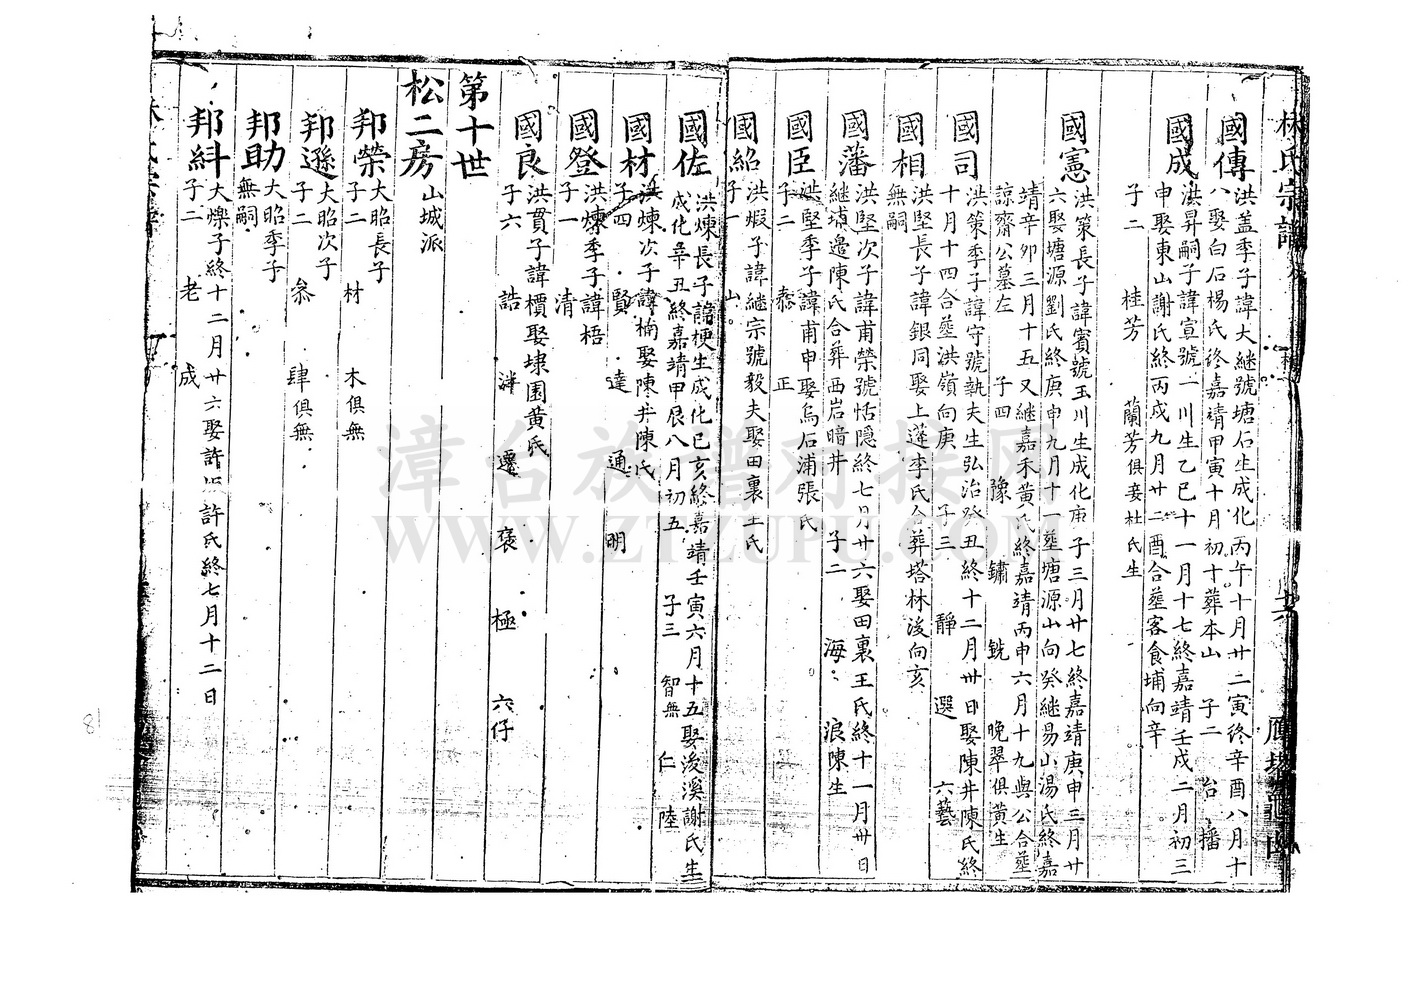 林氏宗譜
國傳
洪盖季子諱大継號塘石生成化丙午十月廿二寅終辛酉八月十
八娶白石楊氏終嘉靖甲寅十月初十葬本山 子二 治 播
國成
洪昇嗣子諱宣號一川生乙巳十一月十七終嘉靖壬戌二月初三
申娶東山謝氏終丙戌九月廿二酉合塟客食埔向辛
子二 桂芳 蘭芳俱妾杜氏生
國憲
洪策長子諱賓號玉川生成化庚子三月廿七終嘉靖庚申三月廿
六娶塘源劉氏終庚申九月十一塟塘源山向癸継易山湯氏終嘉
靖辛卯三月十五又継嘉禾黄氏終嘉靖丙申六月十九與公合塟
諒齋公墓左 子四 豫 鏽 銑 晚翠俱黄生
國司
洪策季子諱守號執夫生弘治癸丑終十二月卅日娶陳井陳氏終
十月十四合塟洪嶺向庚 子三 靜 選 六藝
國相
洪堅長子諱銀同娶上蓬李氏合葬塔林後向亥
無嗣
國藩
洪堅次子諱甫榮號恬隱終七月廿六娶田裏王氏終十一月卅日
継埔邊陳氏合葬西岩暗井 子二 海 浪陳生
國臣
洪堅季子諱甫申娶烏石浦張氏
子二 泰 正
國紹
洪煆子諱継宗號毅夫娶田裏王氏
子一 山
國佐
洪煉長子諱梗生成化己亥終嘉靖壬寅六月十五娶浚溪謝氏生
成化辛丑終嘉靖甲辰八月初五 子三 智無 仁 陸
國材
洪煉次子諱楠娶陳井陳氏
子四 賢 達 通 明
國登
洪煉季子諱梧
子一 清
國良
洪貫子諱檟娶埭園黄氏
子六 誥 泮 遷 褒 極 六仔
第十世
松二房 山城派
邦榮
大昭長子
子二 材 木俱無
邦遜
大昭次子
子二 叅 肆俱無
邦助
大昭季子
無嗣
邦紏
大爍子終十二月廿六娶許坑許氏終七月十二日
子二 老 成
漳台族譜对接网
WWW.ZTZUPU.COM
81